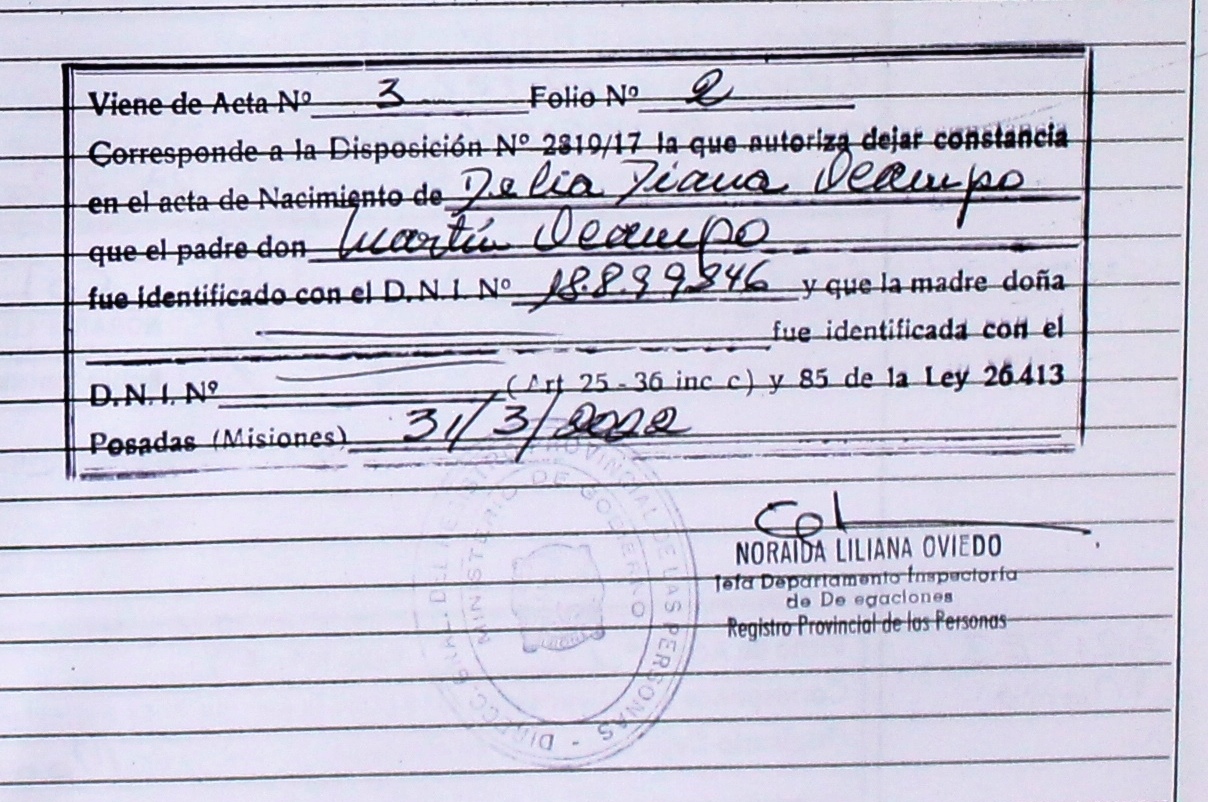 Viene de Acta Nº 3 Folio Nº 2
Corresponde a la Disposición Nº 2819/17 la que autoriza dejar constancia
en el acta de Nacimiento de Delia Diana Ocampo
que el padre don Martín Ocampo
fue identificado con el D.N.I. Nº 18.899.346 y que la madre doña
fue identificada con el
D.N.I. Nº (Art 25-36 inc c) y 85 de la Ley 26.413
Posadas (Misiones) 31/3/2022
NORAIDA LILIANA OVIEDO
Jefa Departamento Inspectoría
de De egaciones
Registro Provincial de las Personas
PROVINCIAL DE LAS PERSONAS
MINISTERIO DE GOBIERNO